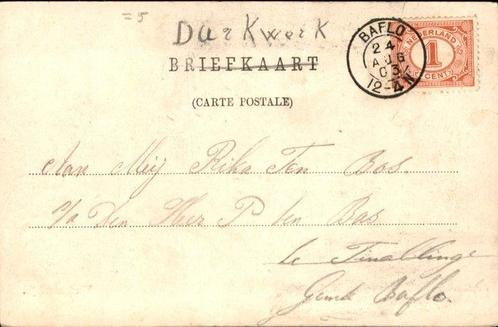 =5
Durkwerk
BRIEFKAART
(CARTE POSTALE)
BAFLO
24
AUG
03
12-4N
NEDERLAND
1
CENT
Aan Meij Rika Ten Bos.
p/a Den Heer P ten Bos
te Tinallinge
Gemte Baflo.